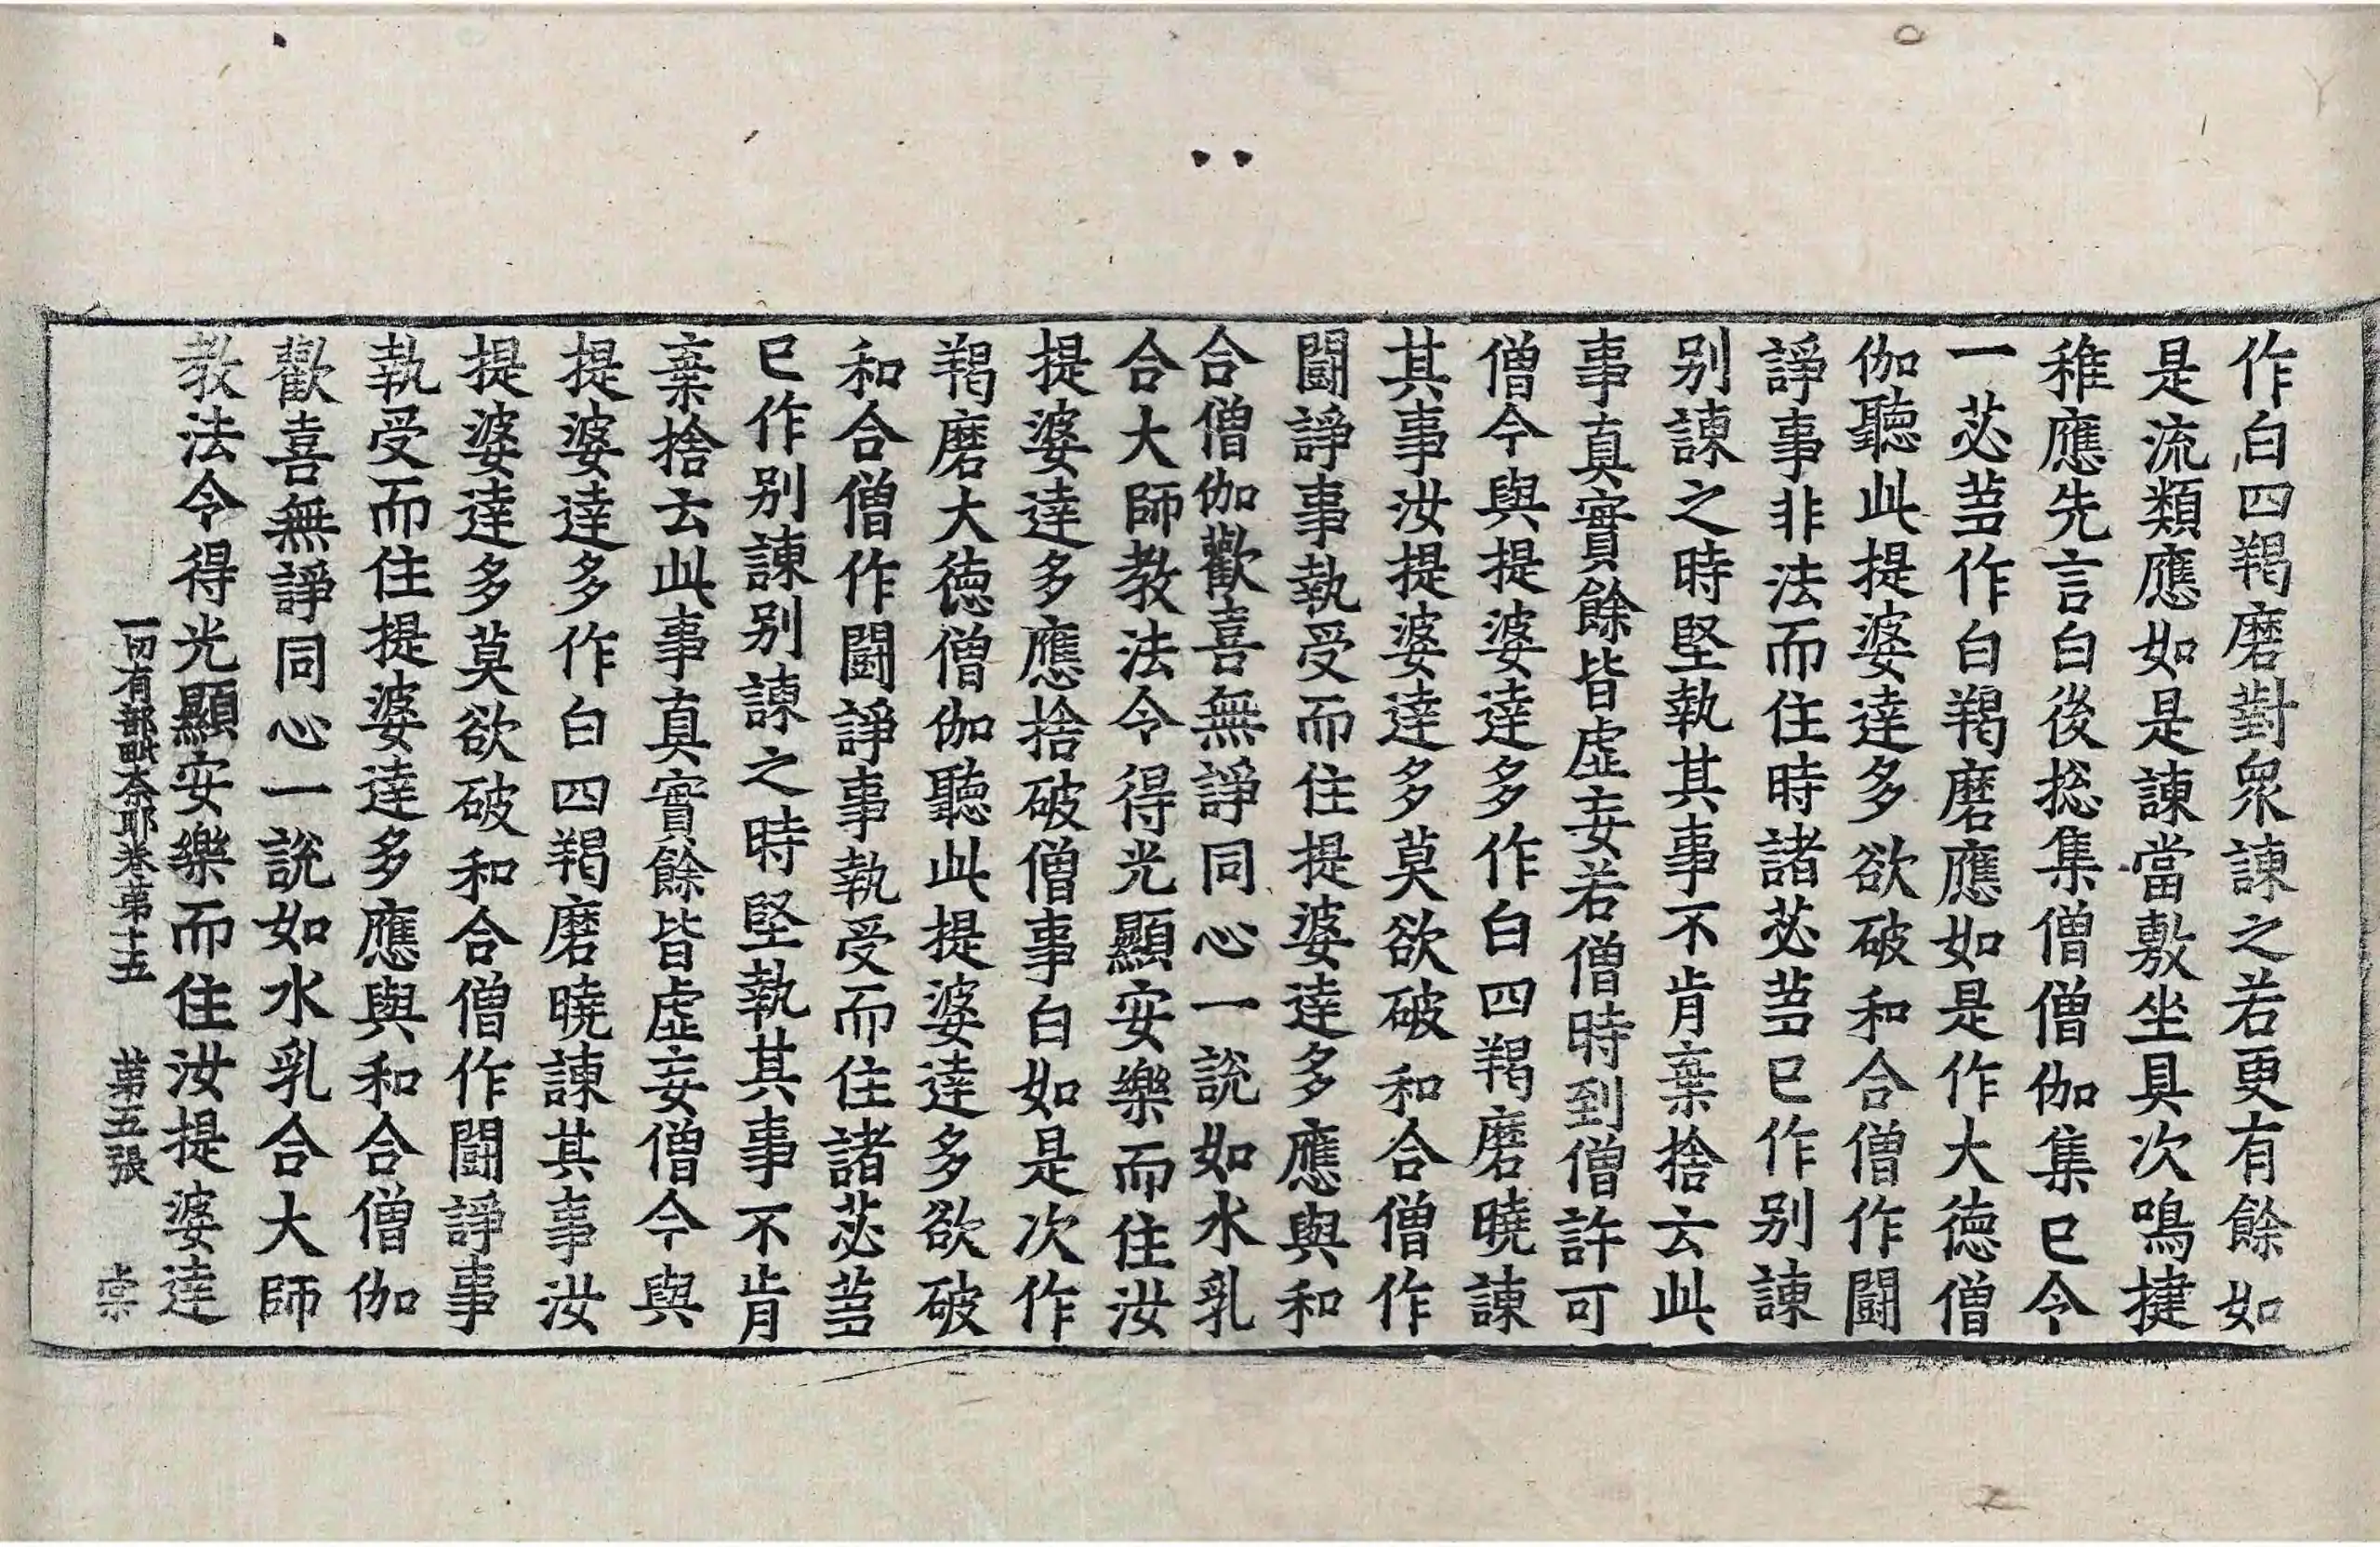 作白四羯磨對衆諫之若更有餘如
是流類應如是諫當敷坐具次鳴揵
稚應先言白後捴集僧僧伽集已令
一苾蒭作白羯磨應如是作大德僧
伽聽此提婆達多欲破和合僧作鬪
諍事非法而住時諸苾蒭已作别諫
别諫之時堅執其事不肯棄捨云此
事真實餘皆虚妄若僧時到僧許可
僧今與提婆達多作白四羯磨曉諫
其事汝提婆達多莫欲破和合僧作
鬪諍事執受而住提婆達多應與和
合僧伽歡喜無諍同心一說如水乳
合大師教法令得光顯安樂而住汝
提婆達多應捨破僧事白如是次作
羯磨大德僧伽聽此提婆達多欲破
和合僧作鬪諍事執受而住諸苾蒭
已作别諫别諫之時堅執其事不肯
棄捨云此事真實餘皆虚妄僧今與
提婆達多作白四羯磨曉諫其事汝
提婆達多莫欲破和合僧作鬪諍事
執受而住提婆達多應與和合僧伽
歡喜無諍同心一說如水乳合大師
教法令得光顯安樂而住汝提婆達
一切有部毗奈耶卷第十五 第五張